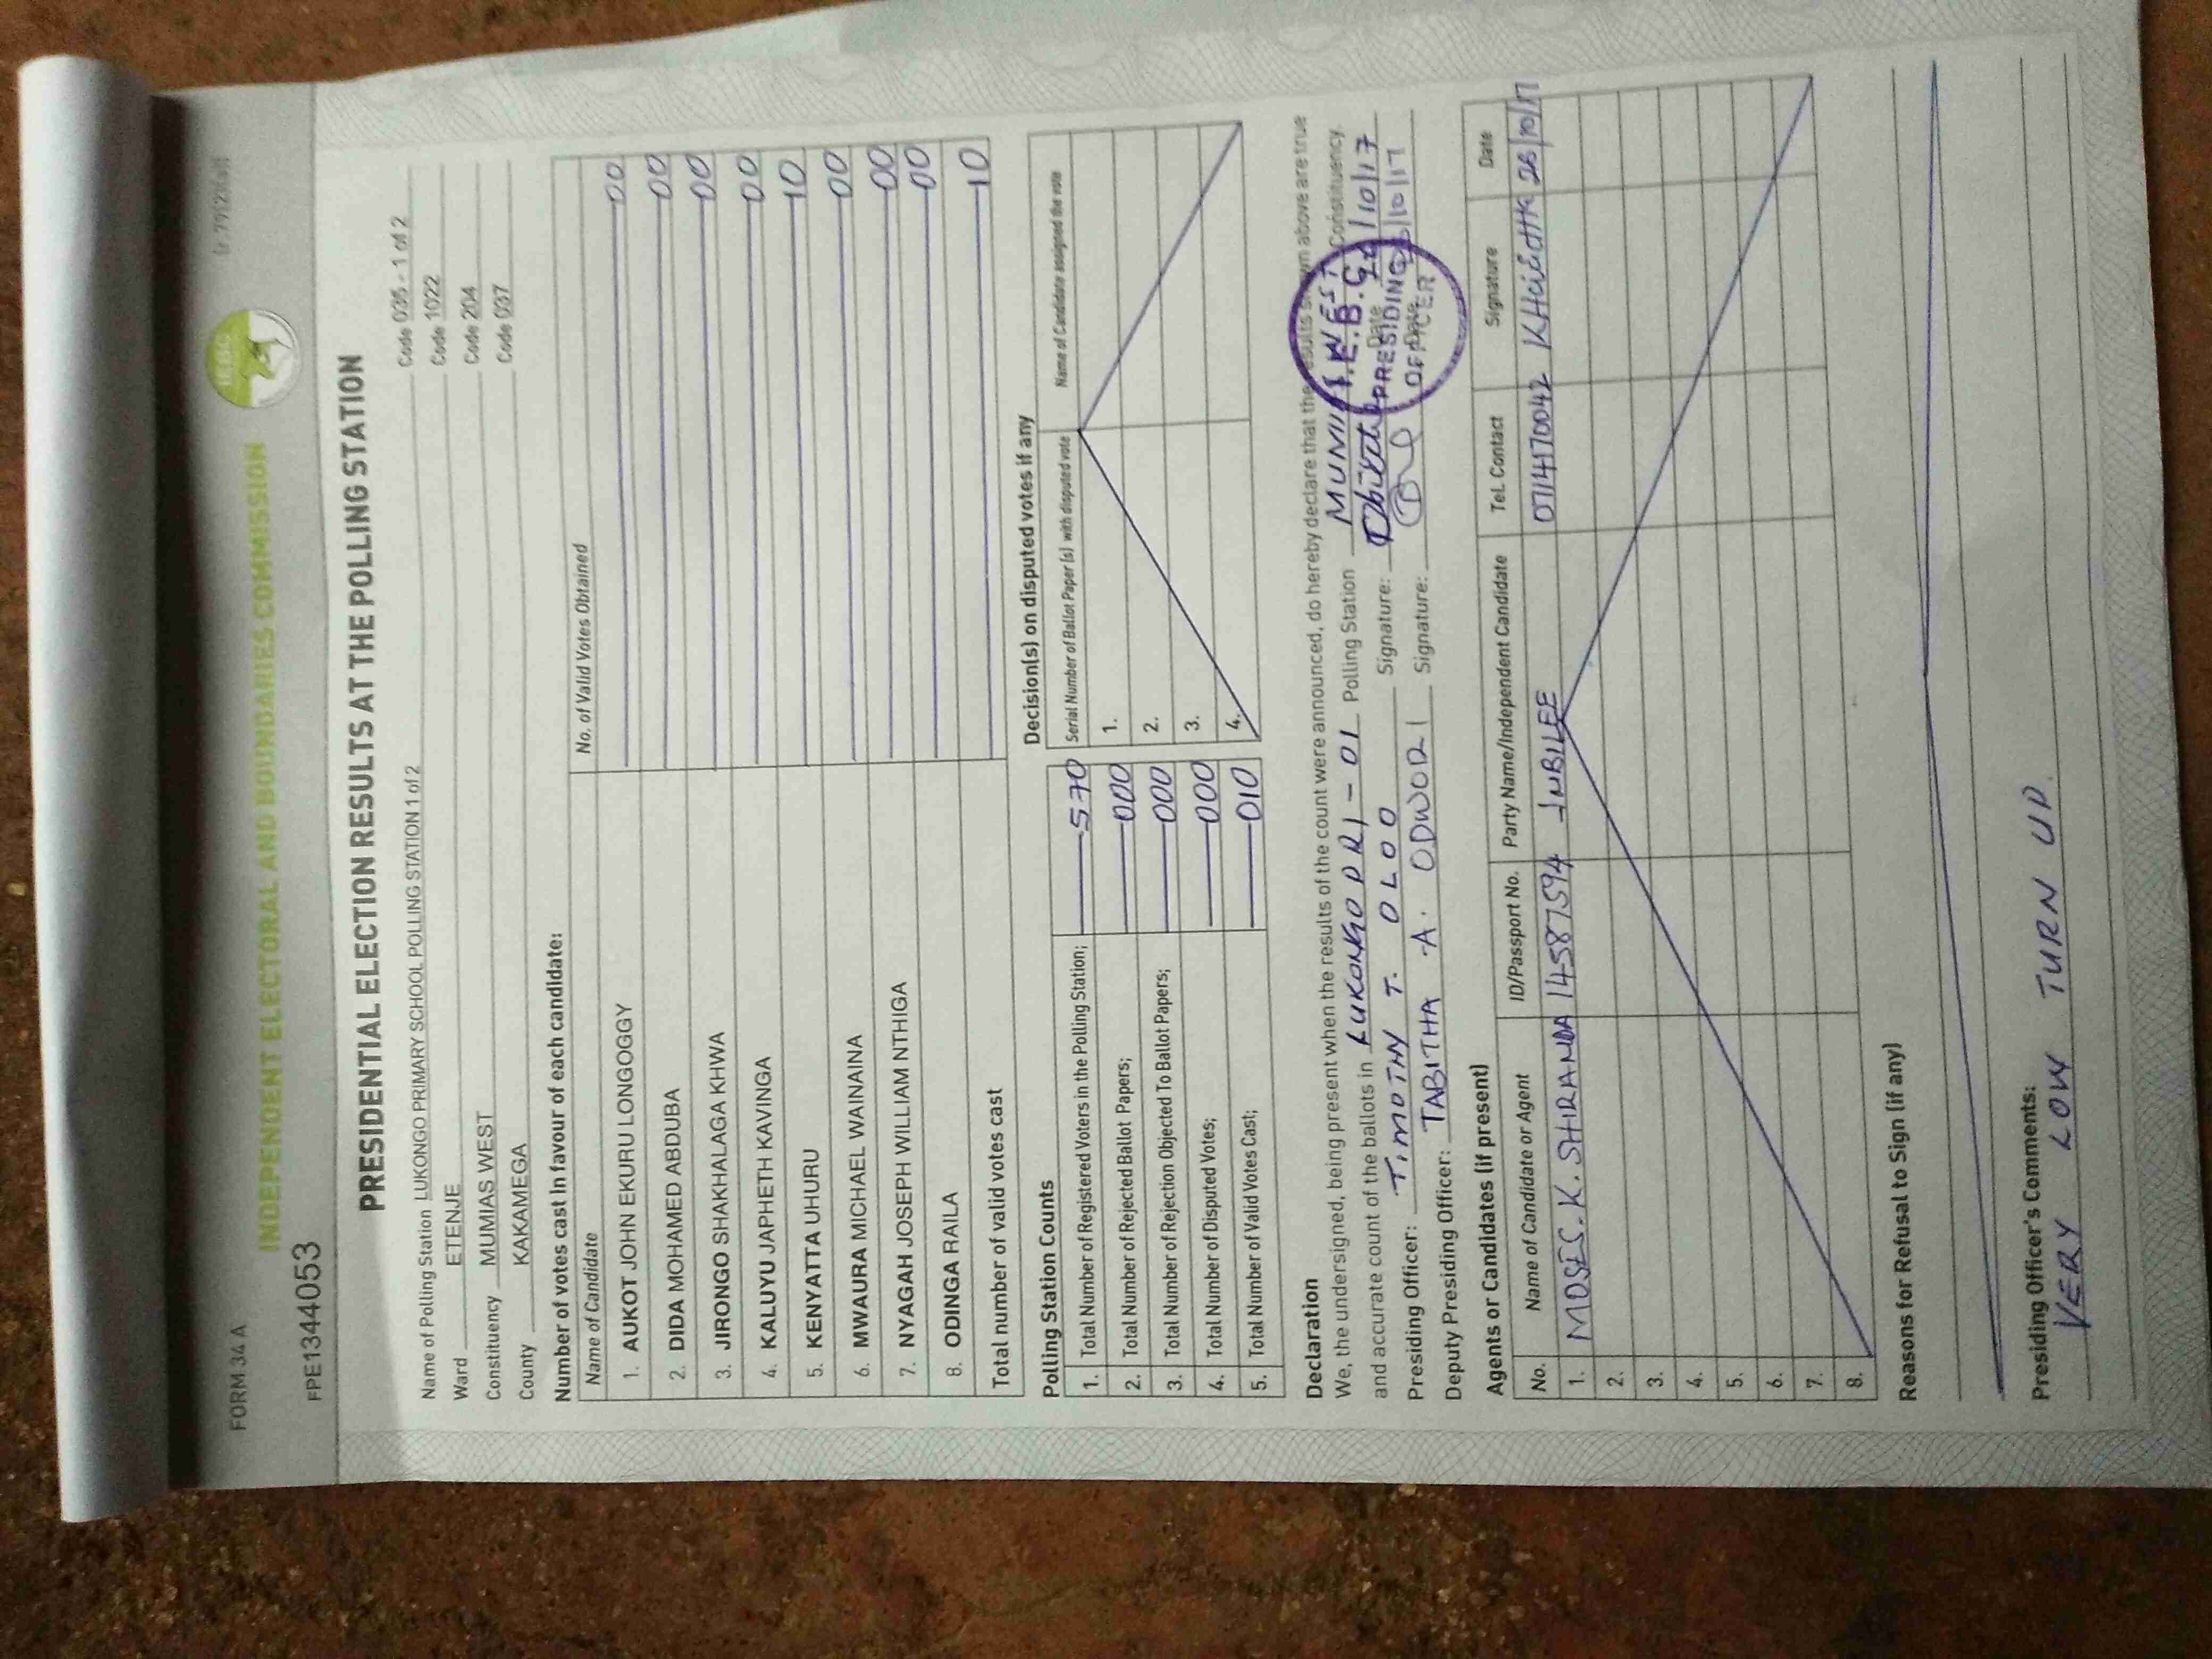 FORM 34 A
INDEPENDENT ELECTORAL AND BOUNDARIES COMMISSION
IEBC
FPE1344053
PRESIDENTIAL ELECTION RESULTS AT THE POLLING STATION
Name of Polling Station LUKONGO PRIMARY SCHOOL POLLING STATION 1 of 2 Code 035 - 1 of 2
Ward ETENJE Code 1022
Constituency MUMIAS WEST Code 204
County KAKAMEGA Code 037
Number of votes cast in favour of each candidate:
Name of Candidate No. of Valid Votes Obtained
1. AUKOT JOHN EKURU LONGOGGY 00
2. DIDA MOHAMED ABDUBA 00
3. JIRONGO SHAKHALAGA KHWA 00
4. KALUYU JAPHETH KAVINGA 00
5. KENYATTA UHURU 10
6. MWAURA MICHAEL WAINAINA 00
7. NYAGAH JOSEPH WILLIAM NTHIGA 00
8. ODINGA RAILA 00
Total number of valid votes cast 10
Polling Station Counts
1. Total Number of Registered Voters in the Polling Station; 570
2. Total Number of Rejected Ballot Papers; 000
3. Total Number of Rejection Objected To Ballot Papers; 000
4. Total Number of Disputed Votes; 000
5. Total Number of Valid Votes Cast; 010
Decision(s) on disputed votes if any
Serial Number of Ballot Paper (s) with disputed vote Name of Candidate assigned the vote
1.
2.
3.
4.
Declaration
We, the undersigned, being present when the results of the count were announced, do hereby declare that the results shown above are true
and accurate count of the ballots in LUKONGO PRI - 01 Polling Station MUMIAS WEST Constituency.
Presiding Officer: TIMOTHY T. OLOO Signature: Date /10/17
Deputy Presiding Officer: TABITHA A. ODWORI Signature: Date /10/17
I.E.B.C.
PRESIDING
OFFICER
Agents or Candidates (if present)
No. Name of Candidate or Agent ID/Passport No. Party Name/Independent Candidate Tel. Contact Signature Date
1. MOSES K. SHIRANDA 14587594 JUBILEE 0714170042 26/10/17
2.
3.
4.
5.
6.
7.
8.
Reasons for Refusal to Sign (if any)
Presiding Officer's Comments:
VERY LOW TURN UP.